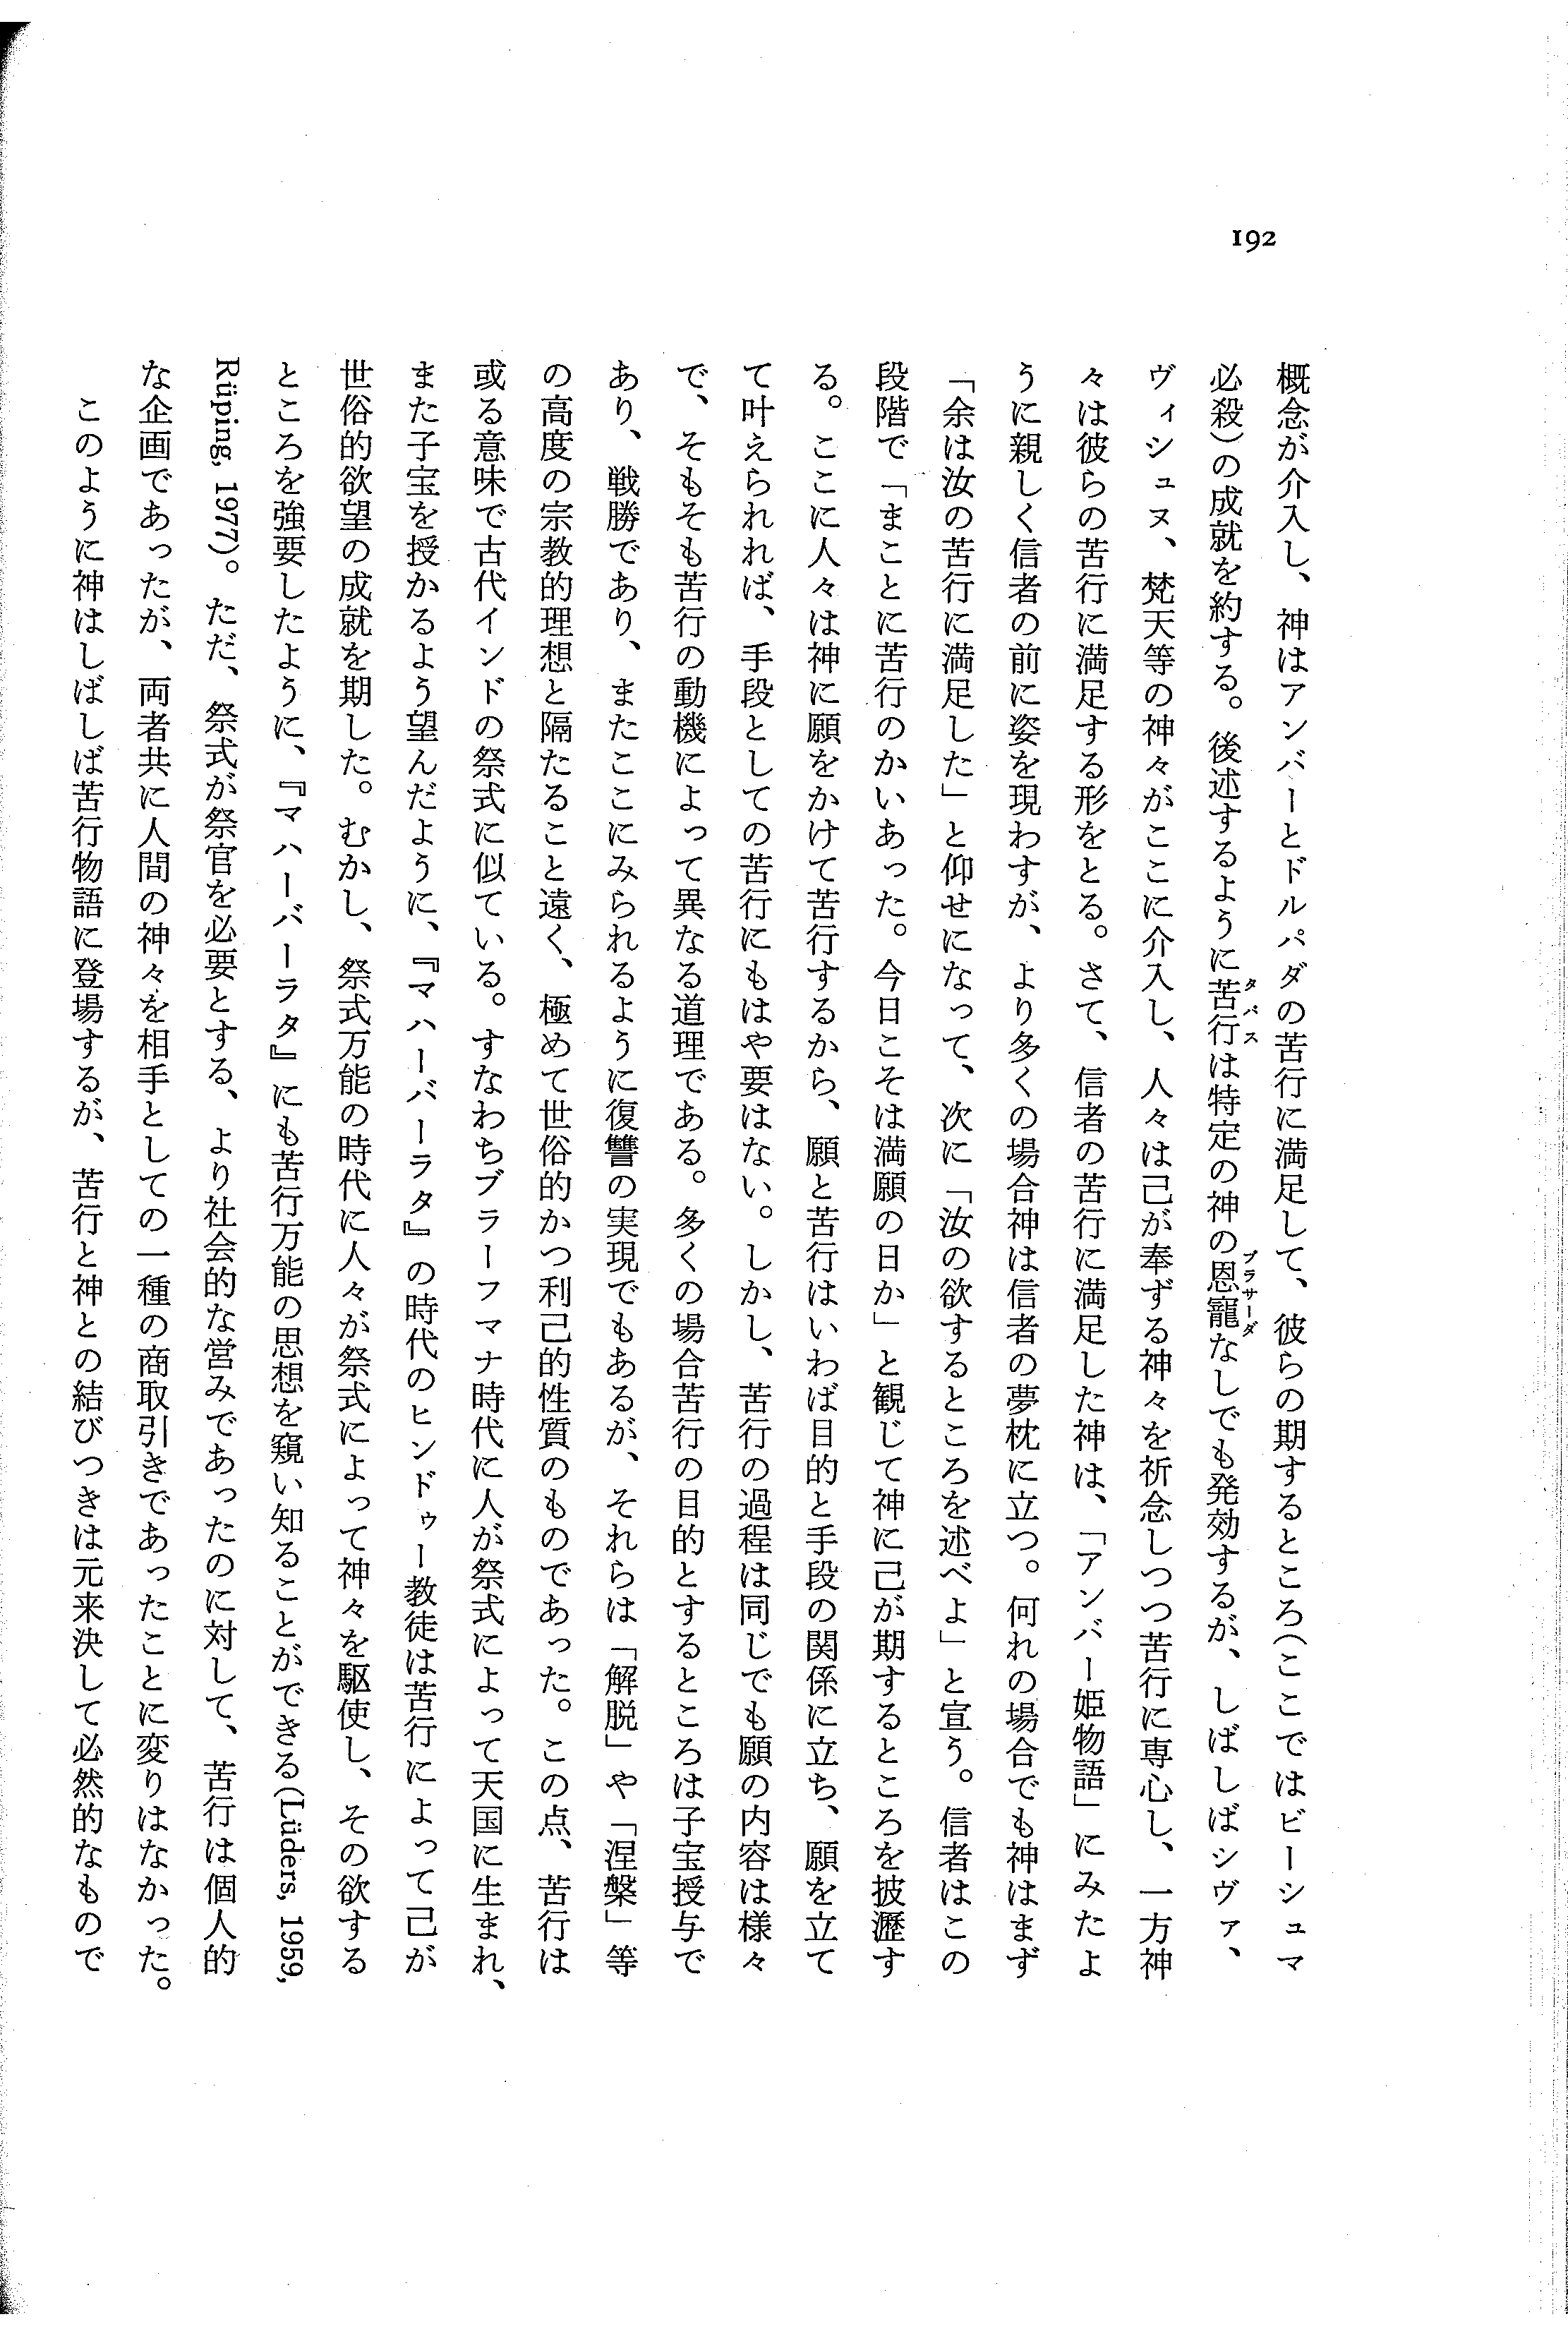 192
概念が介入し、神はアンバーとドルパダの苦行に満足して、彼らの期するところ(ここではビーシュマ
必殺)の成就を約する。後述するように苦行は特定の神の恩寵なしでも発効するが、しばしばシヴァ、
タパス
プラサーダ
ヴィシュヌ、梵天等の神々がここに介入し、人々は己が奉ずる神々を祈念しつつ苦行に専心し、一方神
々は彼らの苦行に満足する形をとる。さて、信者の苦行に満足した神は、「アンバー姫物語」にみたよ
うに親しく信者の前に姿を現わすが、より多くの場合神は信者の夢枕に立つ。何れの場合でも神はまず
「余は汝の苦行に満足した」と仰せになって、次に「汝の欲するところを述べよ」と宣う。信者はこの
段階で「まことに苦行のかいあった。今日こそは満願の日か」と観じて神に己が期するところを披瀝す
る。ここに人々は神に願をかけて苦行するから、願と苦行はいわば目的と手段の関係に立ち、願を立て
て叶えられれば、手段としての苦行にもはや要はない。しかし、苦行の過程は同じでも願の内容は様々
で、そもそも苦行の動機によって異なる道理である。多くの場合苦行の目的とするところは子宝授与で
あり、戦勝であり、またここにみられるように復讐の実現でもあるが、それらは「解脱」や「涅槃」等
の高度の宗教的理想と隔たること遠く、極めて世俗的かつ利己的性質のものであった。この点、苦行は
或る意味で古代インドの祭式に似ている。すなわちブラーフマナ時代に人が祭式によって天国に生まれ、
また子宝を授かるよう望んだように、『マハーバーラタ』の時代のヒンドゥー教徒は苦行によって己が
世俗的欲望の成就を期した。むかし、祭式万能の時代に人々が祭式によって神々を駆使し、その欲する
ところを強要したように、『マハーバーラタ』にも苦行万能の思想を窺い知ることができる(Lüders, 1959,
Rüping, 1977)。ただ、祭式が祭官を必要とする、より社会的な営みであったのに対して、苦行は個人的
な企画であったが、両者共に人間の神々を相手としての一種の商取引きであったことに変りはなかった。
このように神はしばしば苦行物語に登場するが、苦行と神との結びつきは元来決して必然的なもので